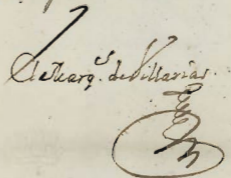 El Marq.^s de Villarias.